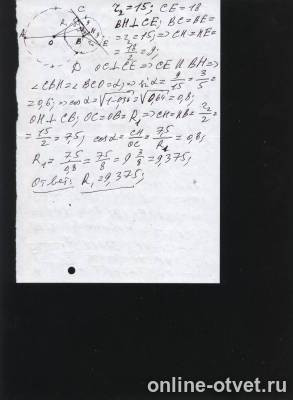 r₂=15; CE=18
BH⊥CE; BC=BE=
=r₂=15; ⇒ CH=HE=
=18/2=9;
OC⊥CE ⇒ CE ∥ BH ⇒
∠CBH=∠BCO=α; ⇒ sinα=9/15=3/5=
=0,6; ⇒ cosα=√1-0,36=√0,64=0,8;
OH⊥CB; OC=OB=R₁ ⇒ CH=HB=r₂/2=
=15/2=7,5; cosα=CH/OC=7,5/R₁=0,8;
R₁=7,5/0,8=75/8=9 3/8=9,375;
Ответ: R₁=9,375;
C
A
O
B
E
online-otvet.ru